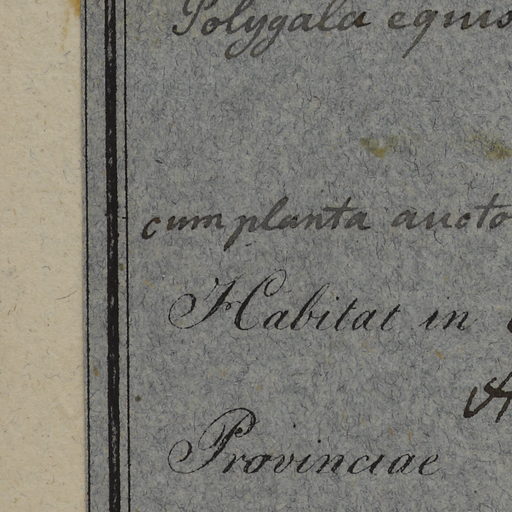 Polygala equis
cum planta aucto
Habitat in
Provinciae